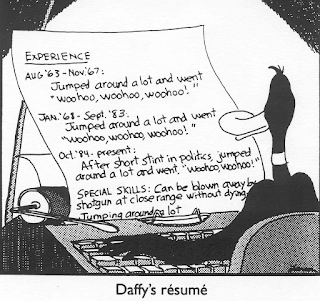 EXPERIENCE
AUG '63 - NOV. '67:
Jumped around a lot and went
"woohoo, woohoo, woohoo!"
JAN. '68 - Sept. '83:
Jumped around a lot and went
"woohoo, woohoo, woohoo!"
Oct. '84 - present:
After short stint in politics, jumped
around a lot and went, "woohoo, woohoo!"
SPECIAL SKILLS: Can be blown away by
shotgun at close range without dying.
Jumping around a lot
Daffy's résumé